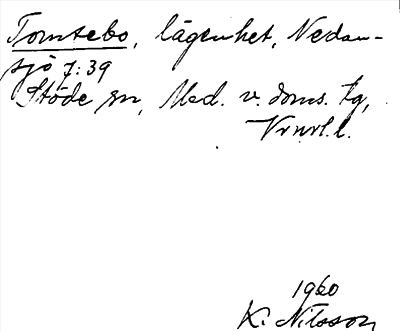 Tomtebo, lägenhet, Nedan-
sjö 7:39
Stöde sn, Med. v. doms. tg,
Vrnrl.l.
1960
K. Nilsson